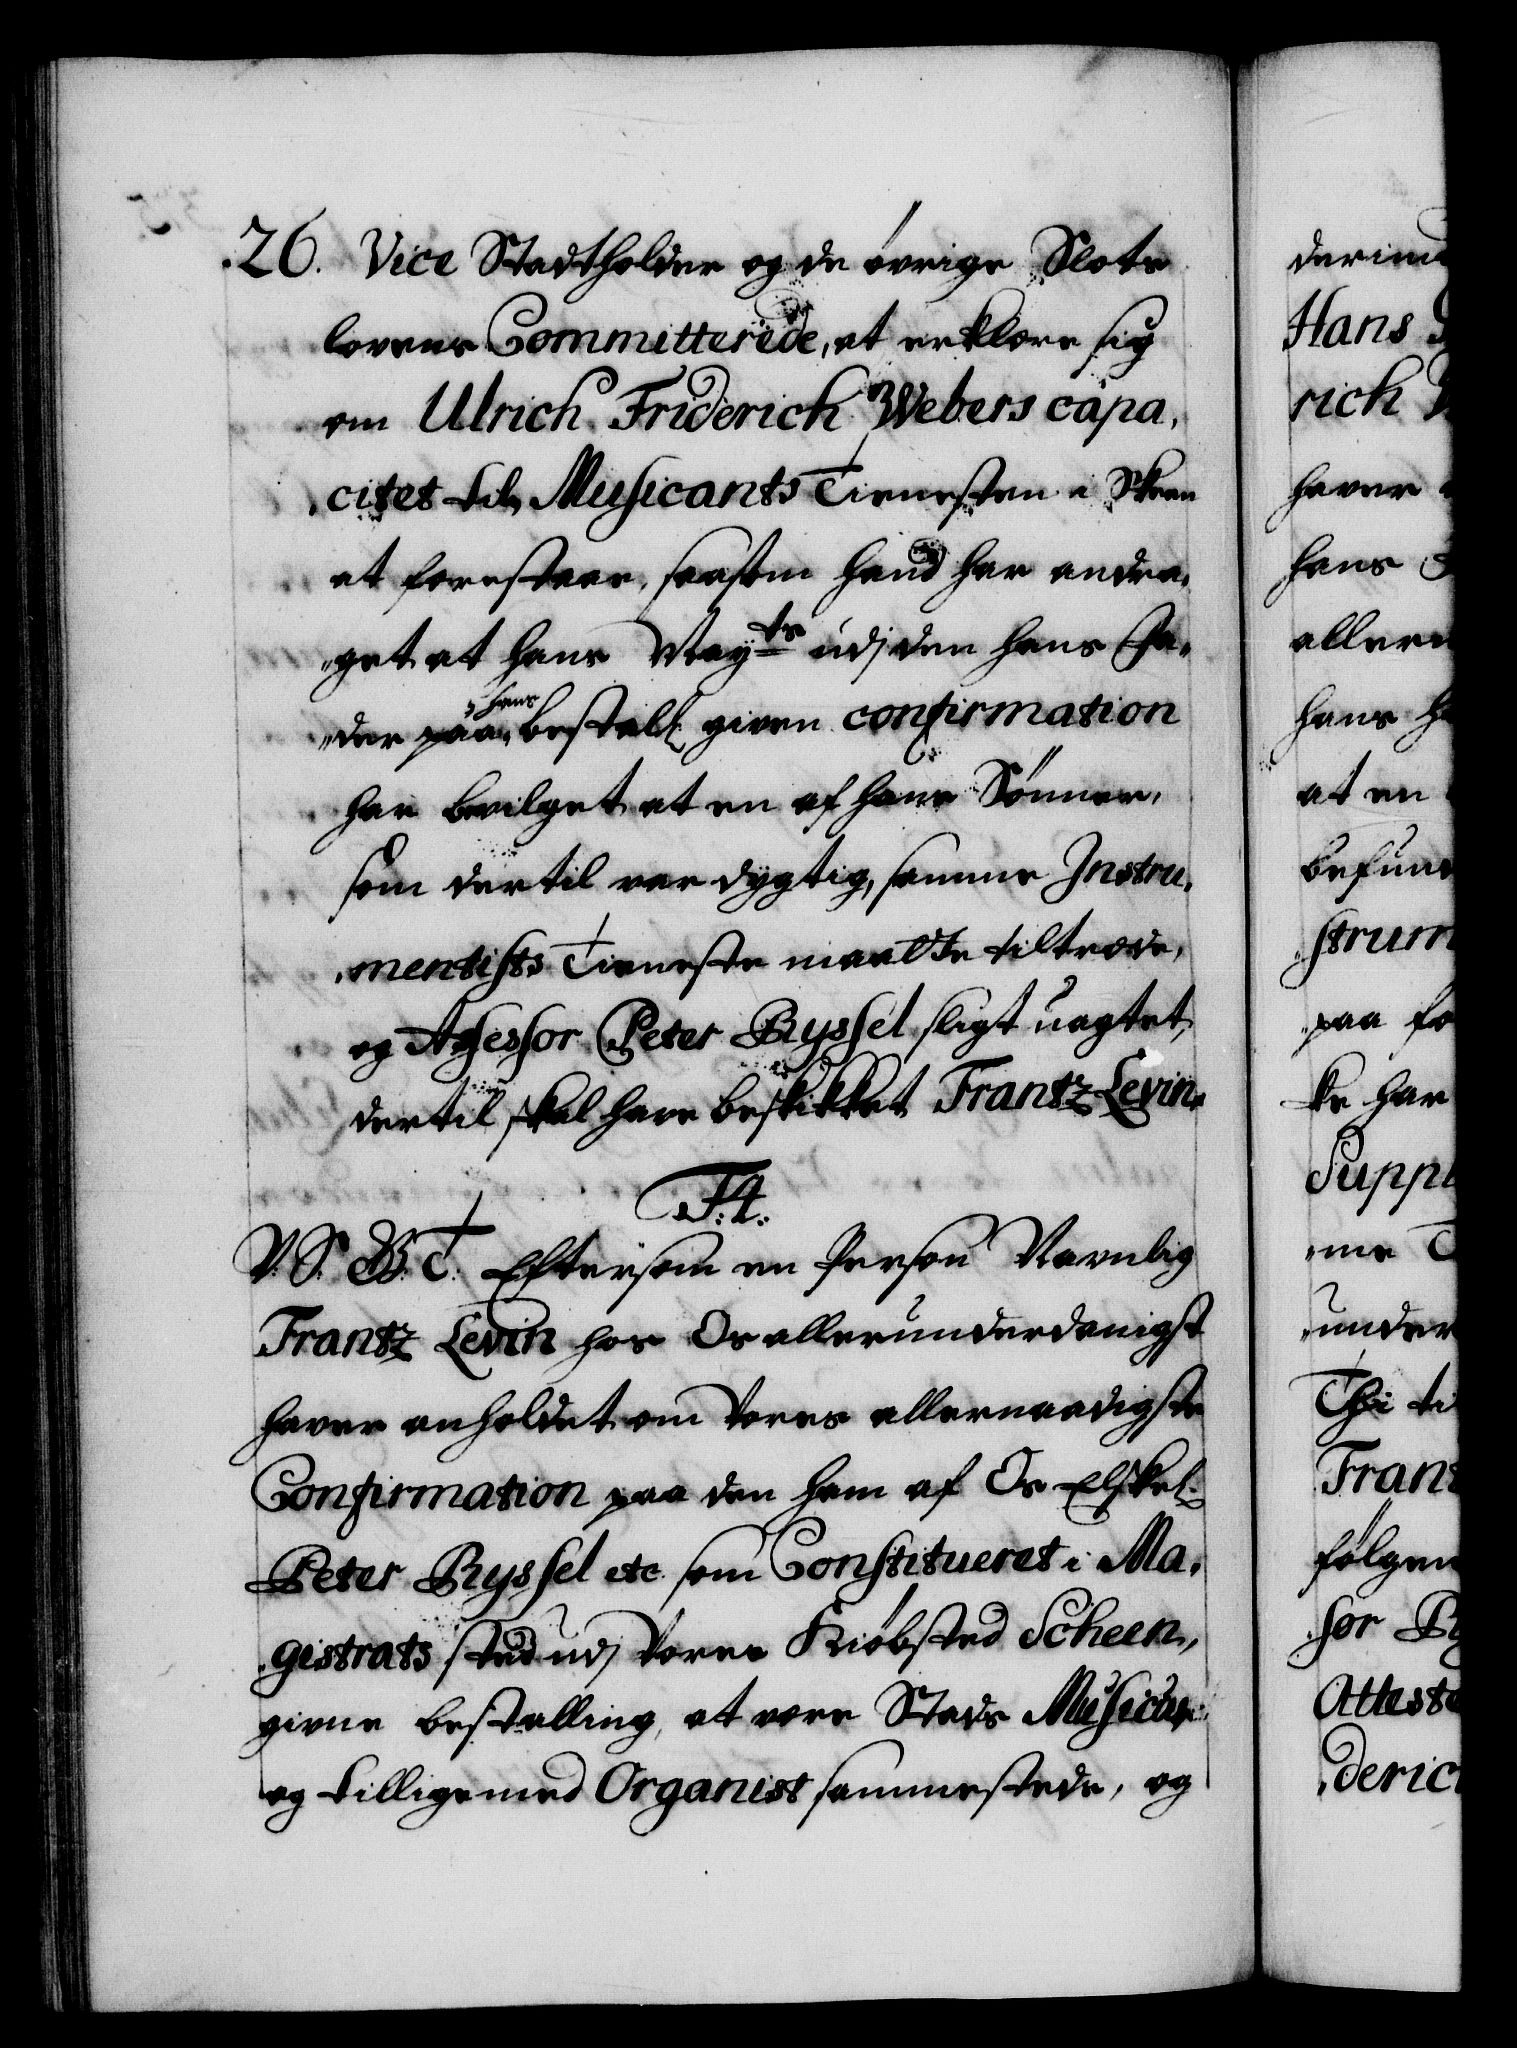 26. Vice Stadtholder og de øvrige Slots
lovens Committerede, at erklære sig
om Ulrich Friderich Webers capa,
citet til Musicants Tienesten i Skeen
at forestaae, saasom hand har andra,
get at hans May.ts udj den hans Fa,
der paa hans bestall. given confirmation
har bevilget at en af hans Sønner,
som dertil var dygtig, samme Instru,
mentists Tieneste maatte tiltræde,
og Assessor Peter Ryssel sligt uagtet
dertil skal have beskikket Frantz Levin.
F. 4.
V. S. G. T. Eftersom en Person Navnlig
Frantz Levin hos Os allerunderdanigst
haver anholdet om Vores allernaadigste
Confirmation paa den ham af Os Elskel.
Peter Ryssel etc. som Constitueret i Ma,
gistrats sted udj Vores Kiøbsted Scheen,
givne bestalling, at være Stads Musicus
og tilligemed Organist sammestede, og
Hans
rich
haver
hans
hans
at en
paa
har
under
Thi